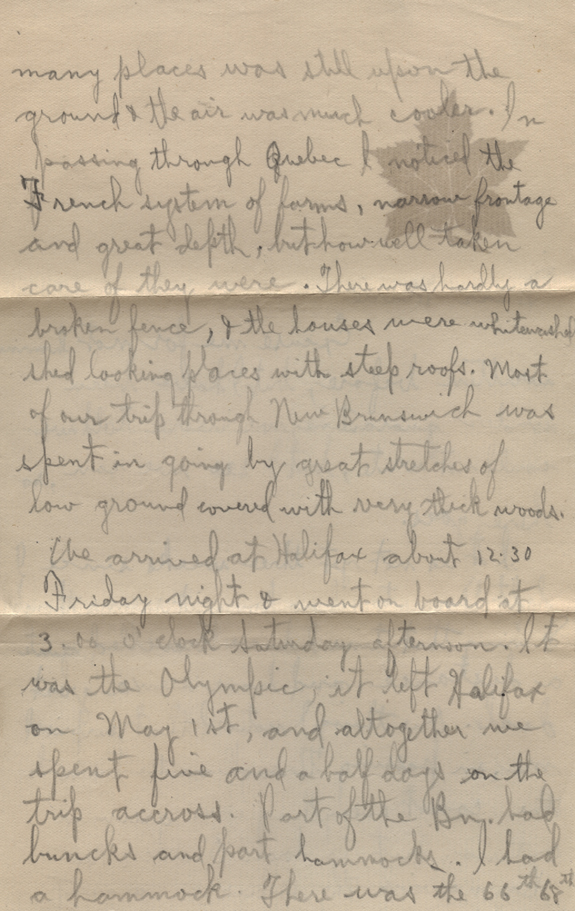 many places was still upon the
ground & the air was much cooler. In
passing through Quebec I noticed the
French system of farms, narrow frontage
and great depth, but how well taken
care of they were. There was hardly a
broken fence, & the houses were whitewashed
shed looking places with steep roofs. Most
of our trip through New Brunswich was
spent in going by great stretches of
low ground covered with very thick woods.
We arrived at Halifax about 12.30
Friday night & went on board at
3.00 o'clock Saturday afternoon. It
was the Olympic, it left Halifax
on May 1st, and altogether we
spent five and a half days on the
trip accross. Part of the Bn. had
buncks and part hammocks. I had
a hammock. There was the 66th 68th